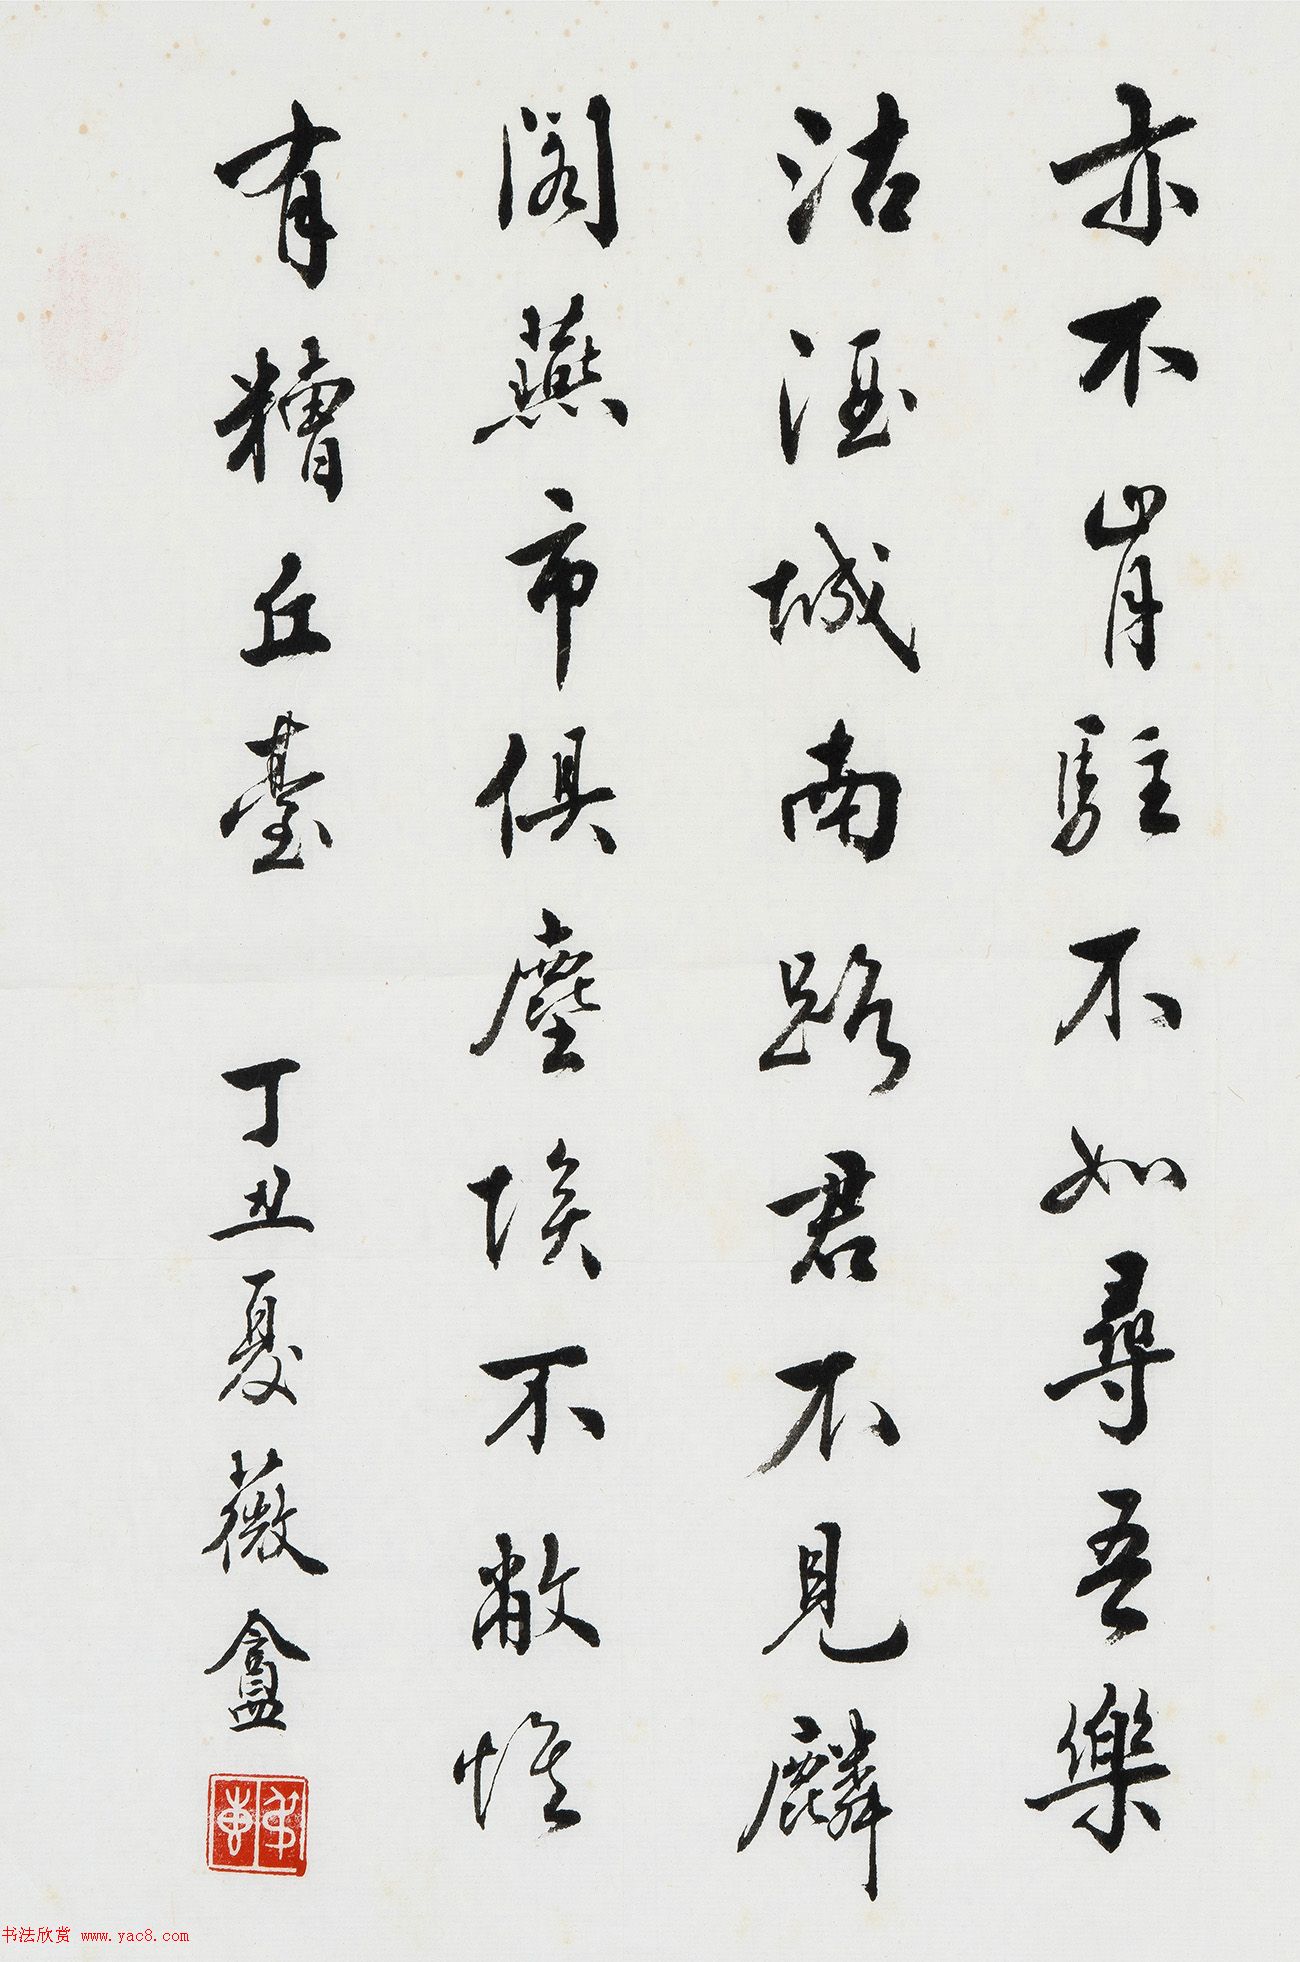 亦不肯駐不如尋吾樂
沽酒城南路君不見麟
阁燕市俱塵埃不敝惟
有糟丘臺
丁丑夏薇盦
书法欣赏 www.yac8.com